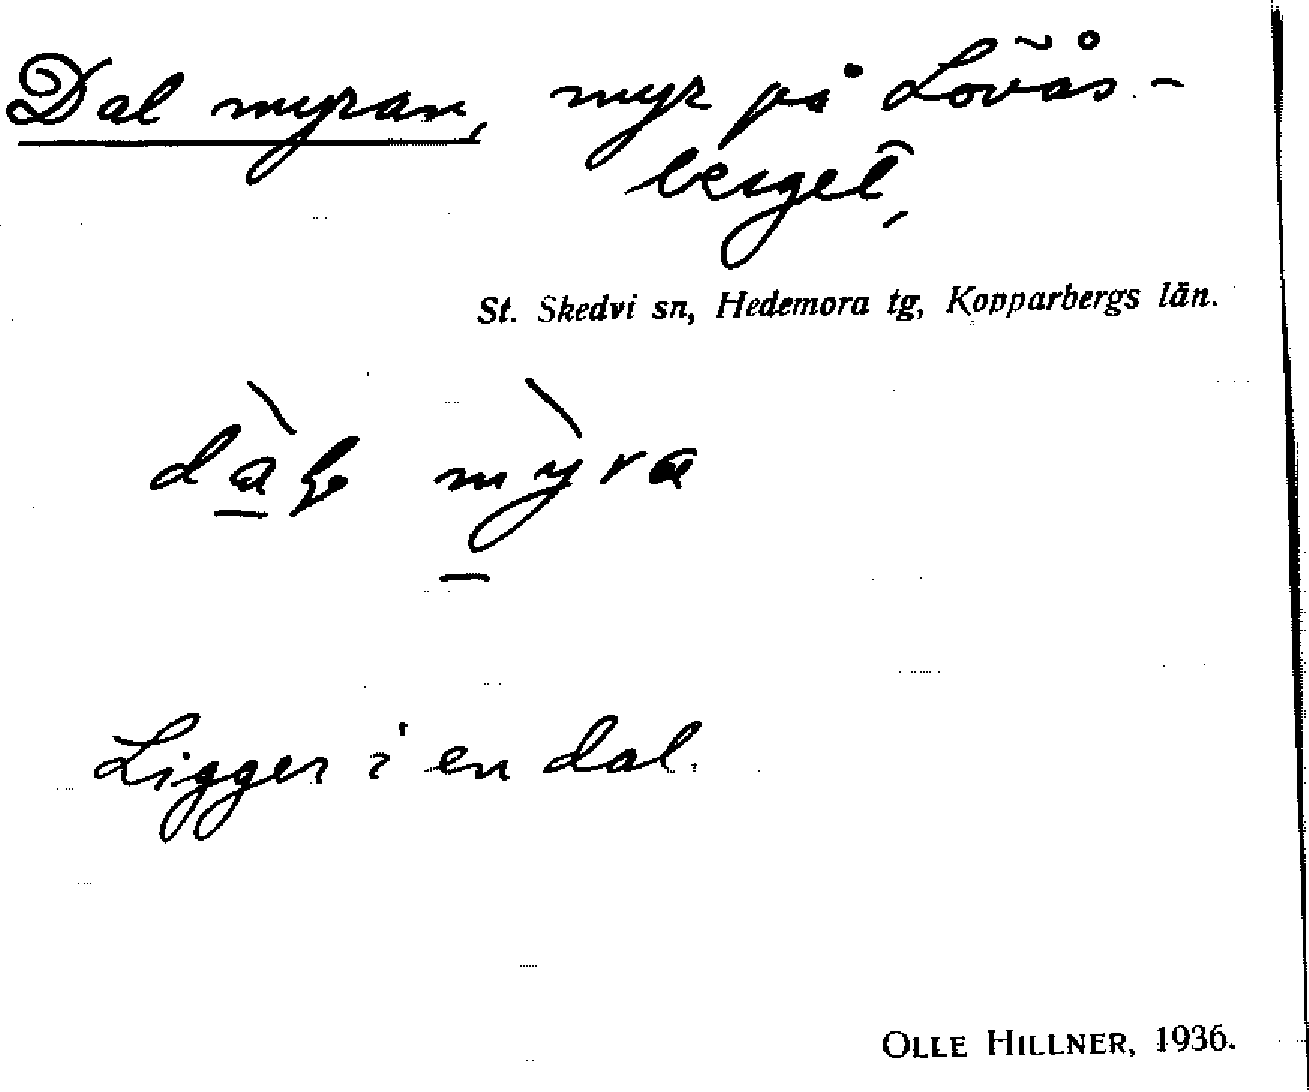 Dalmyran, myr på Lövås-
berget,
St. Skedvi sn, Hedemora tg, Kopparbergs län.
Ligger i en dal.
OLLE HILLNER, 1936.